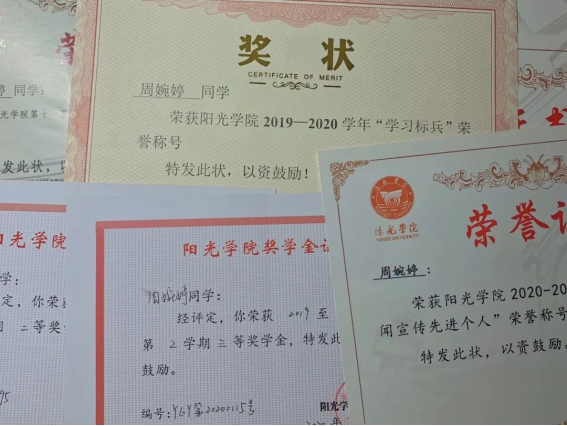 荣
婷 同学:
光学院第十
发此状,以
奖 状
CERTIFICATE OF MERIT
周婉婷 同学
荣获阳光学院 2019—2020 学年“学习标兵”荣
誉称号
特发此状,以资鼓励!
光学院
学:
定,你荣获
期 二等奖
95
阳光学院奖学金
周婉婷同学:
经评定,你荣获 2019 至
第 2 学期三等奖学金,特发此
鼓励。
编号:YGY第20200115号
阳光学
2020 年
阳光学院
YANGO UNIVERSITY
荣誉证
周婉婷:
荣获阳光学院 2020-20
闻宣传先进个人”荣誉称号
特发此状,以资鼓励。